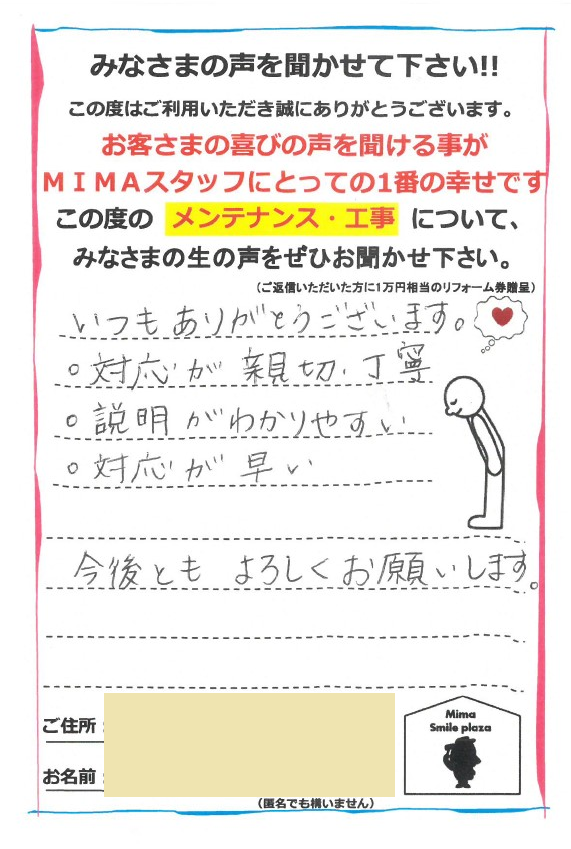 みなさまの声を聞かせて下さい!!
この度はご利用いただき誠にありがとうございます。
お客さまの喜びの声を聞ける事が
MIMAスタッフにとっての1番の幸せです
この度の メンテナンス・工事 について、
みなさまの生の声をぜひお聞かせ下さい。
(ご返信いただいた方に1万円相当のリフォーム券贈呈)
いつもありがとうございます。
○対応が親切、丁寧
○説明がわかりやすい
○対応が早い
今後とも よろしくお願いします。
ご住所:
お名前:
(匿名でも構いません)
Mima
Smile plaza